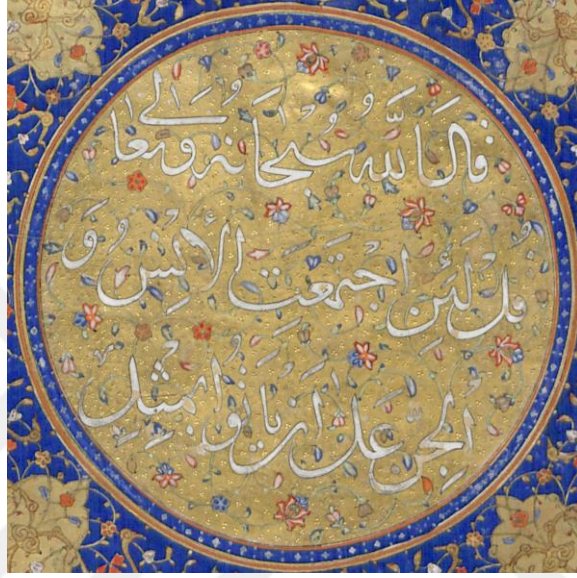 قال الله سبحانه وتعالى
قل لئن اجتمعت الأنس و
الجن على ان يأتوا بمثل